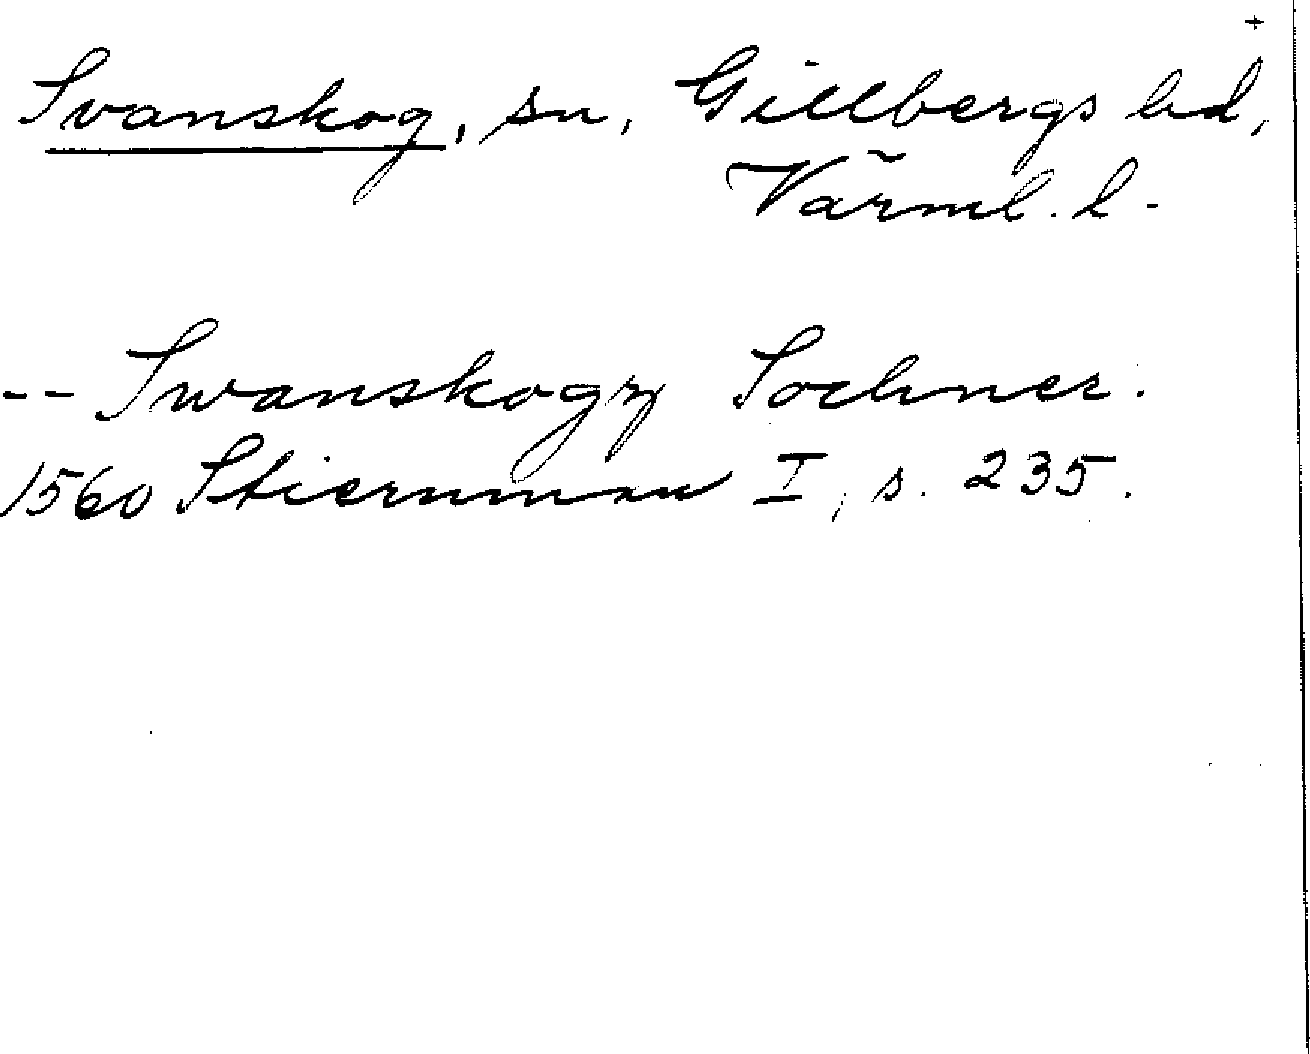 +
Svanskog, sn, Gillbergs hd,
Värml. l.
-- Swanskogz Sochner.
1560 Stiernman I, s. 235.